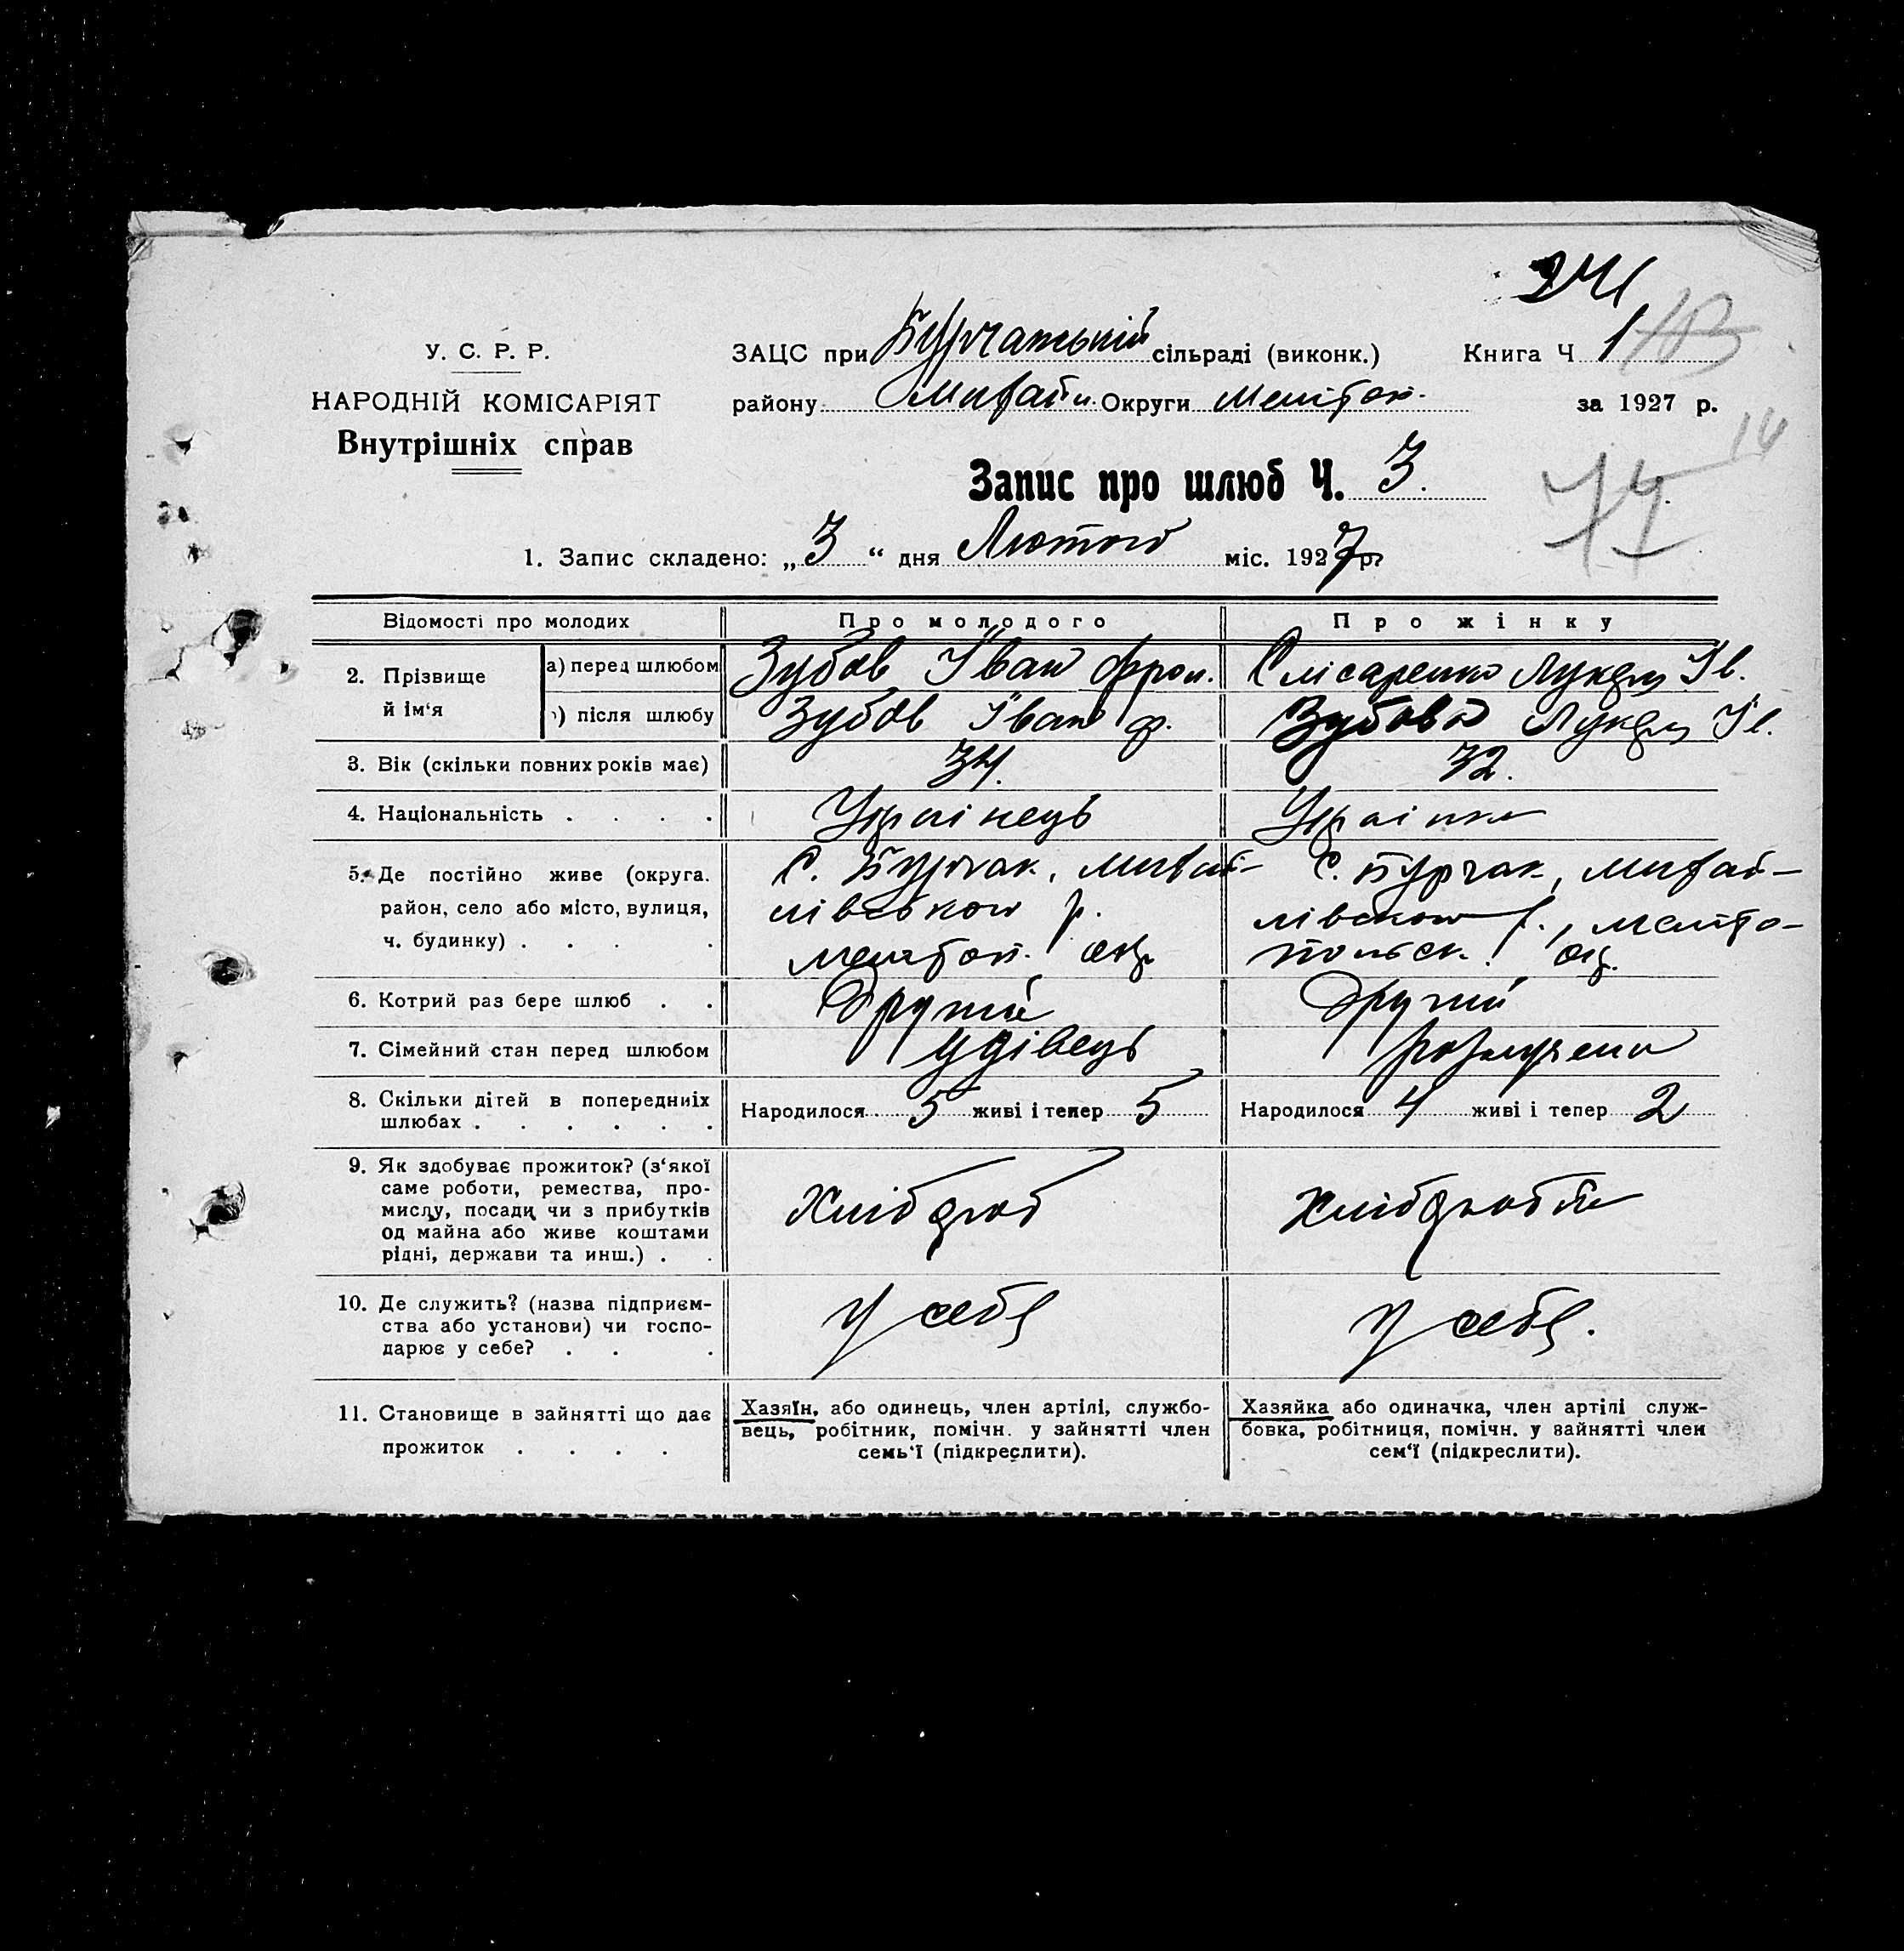 24
У. С. Р. Р.
НАРОДНІЙ КОМІСАРІЯТ
Внутрішніх справ
ЗАЦС при Бурчатській сільраді (виконк.) Книга Ч 1
району Михайл. Округи Мелітоп. за 1927 р.
14
74
Запис про шлюб Ч. 3.
1. Запис складено: „3“ дня Лютого міс. 1927 р.
Відомості про молодих Про молодого Про жінку
2. Прізвище й ім‘я
а) перед шлюбом Зубов Іван Фрол. Слісаренко Лукер Ів.
) після шлюбу Зубов Іван Ф. Зубова Лукер Ів.
3. Вік (скільки повних років має) 34. 32.
4. Національність . . . . Українець Українка
5. Де постійно живе (округа. С. Бурчак, Михай- С. Бурчак, Михай-
район, село або місто, вулиця, лівського р. лівского р., Меліто-
ч. будинку) . . . . Мелітоп. окр. польск. окр.
6. Котрий раз бере шлюб . . Другий Другий
7. Сімейний стан перед шлюбом Удівець Розлучена
8. Скільки дітей в попередниіх Народилося 5 живі і тепер 5 Народилося 4 живі і тепер 2
шлюбах . . . . . .
9. Як здобуває прожиток? (з‘якої
саме роботи, ремества, про-
мислу, посади чи з прибутків Хлібороб Хліборобка
од майна або живе коштами
рідні, держави та инш.) . .
10. Де служить? (назва підприєм-
ства або установи) чи госпо- У себе У себе.
дарює у себе? . . .
11. Становище в зайнятті що дає Хазяїн, або одинець, член артілі, службо- Хазяйка або одиначка, член артілі служ-
прожиток . . . . вець, робітник, помічн. у зайнятті член бовка, робітниця, помічн. у зайнятті член
семь‘ї (підкреслити). сем‘ї (підкреслити).